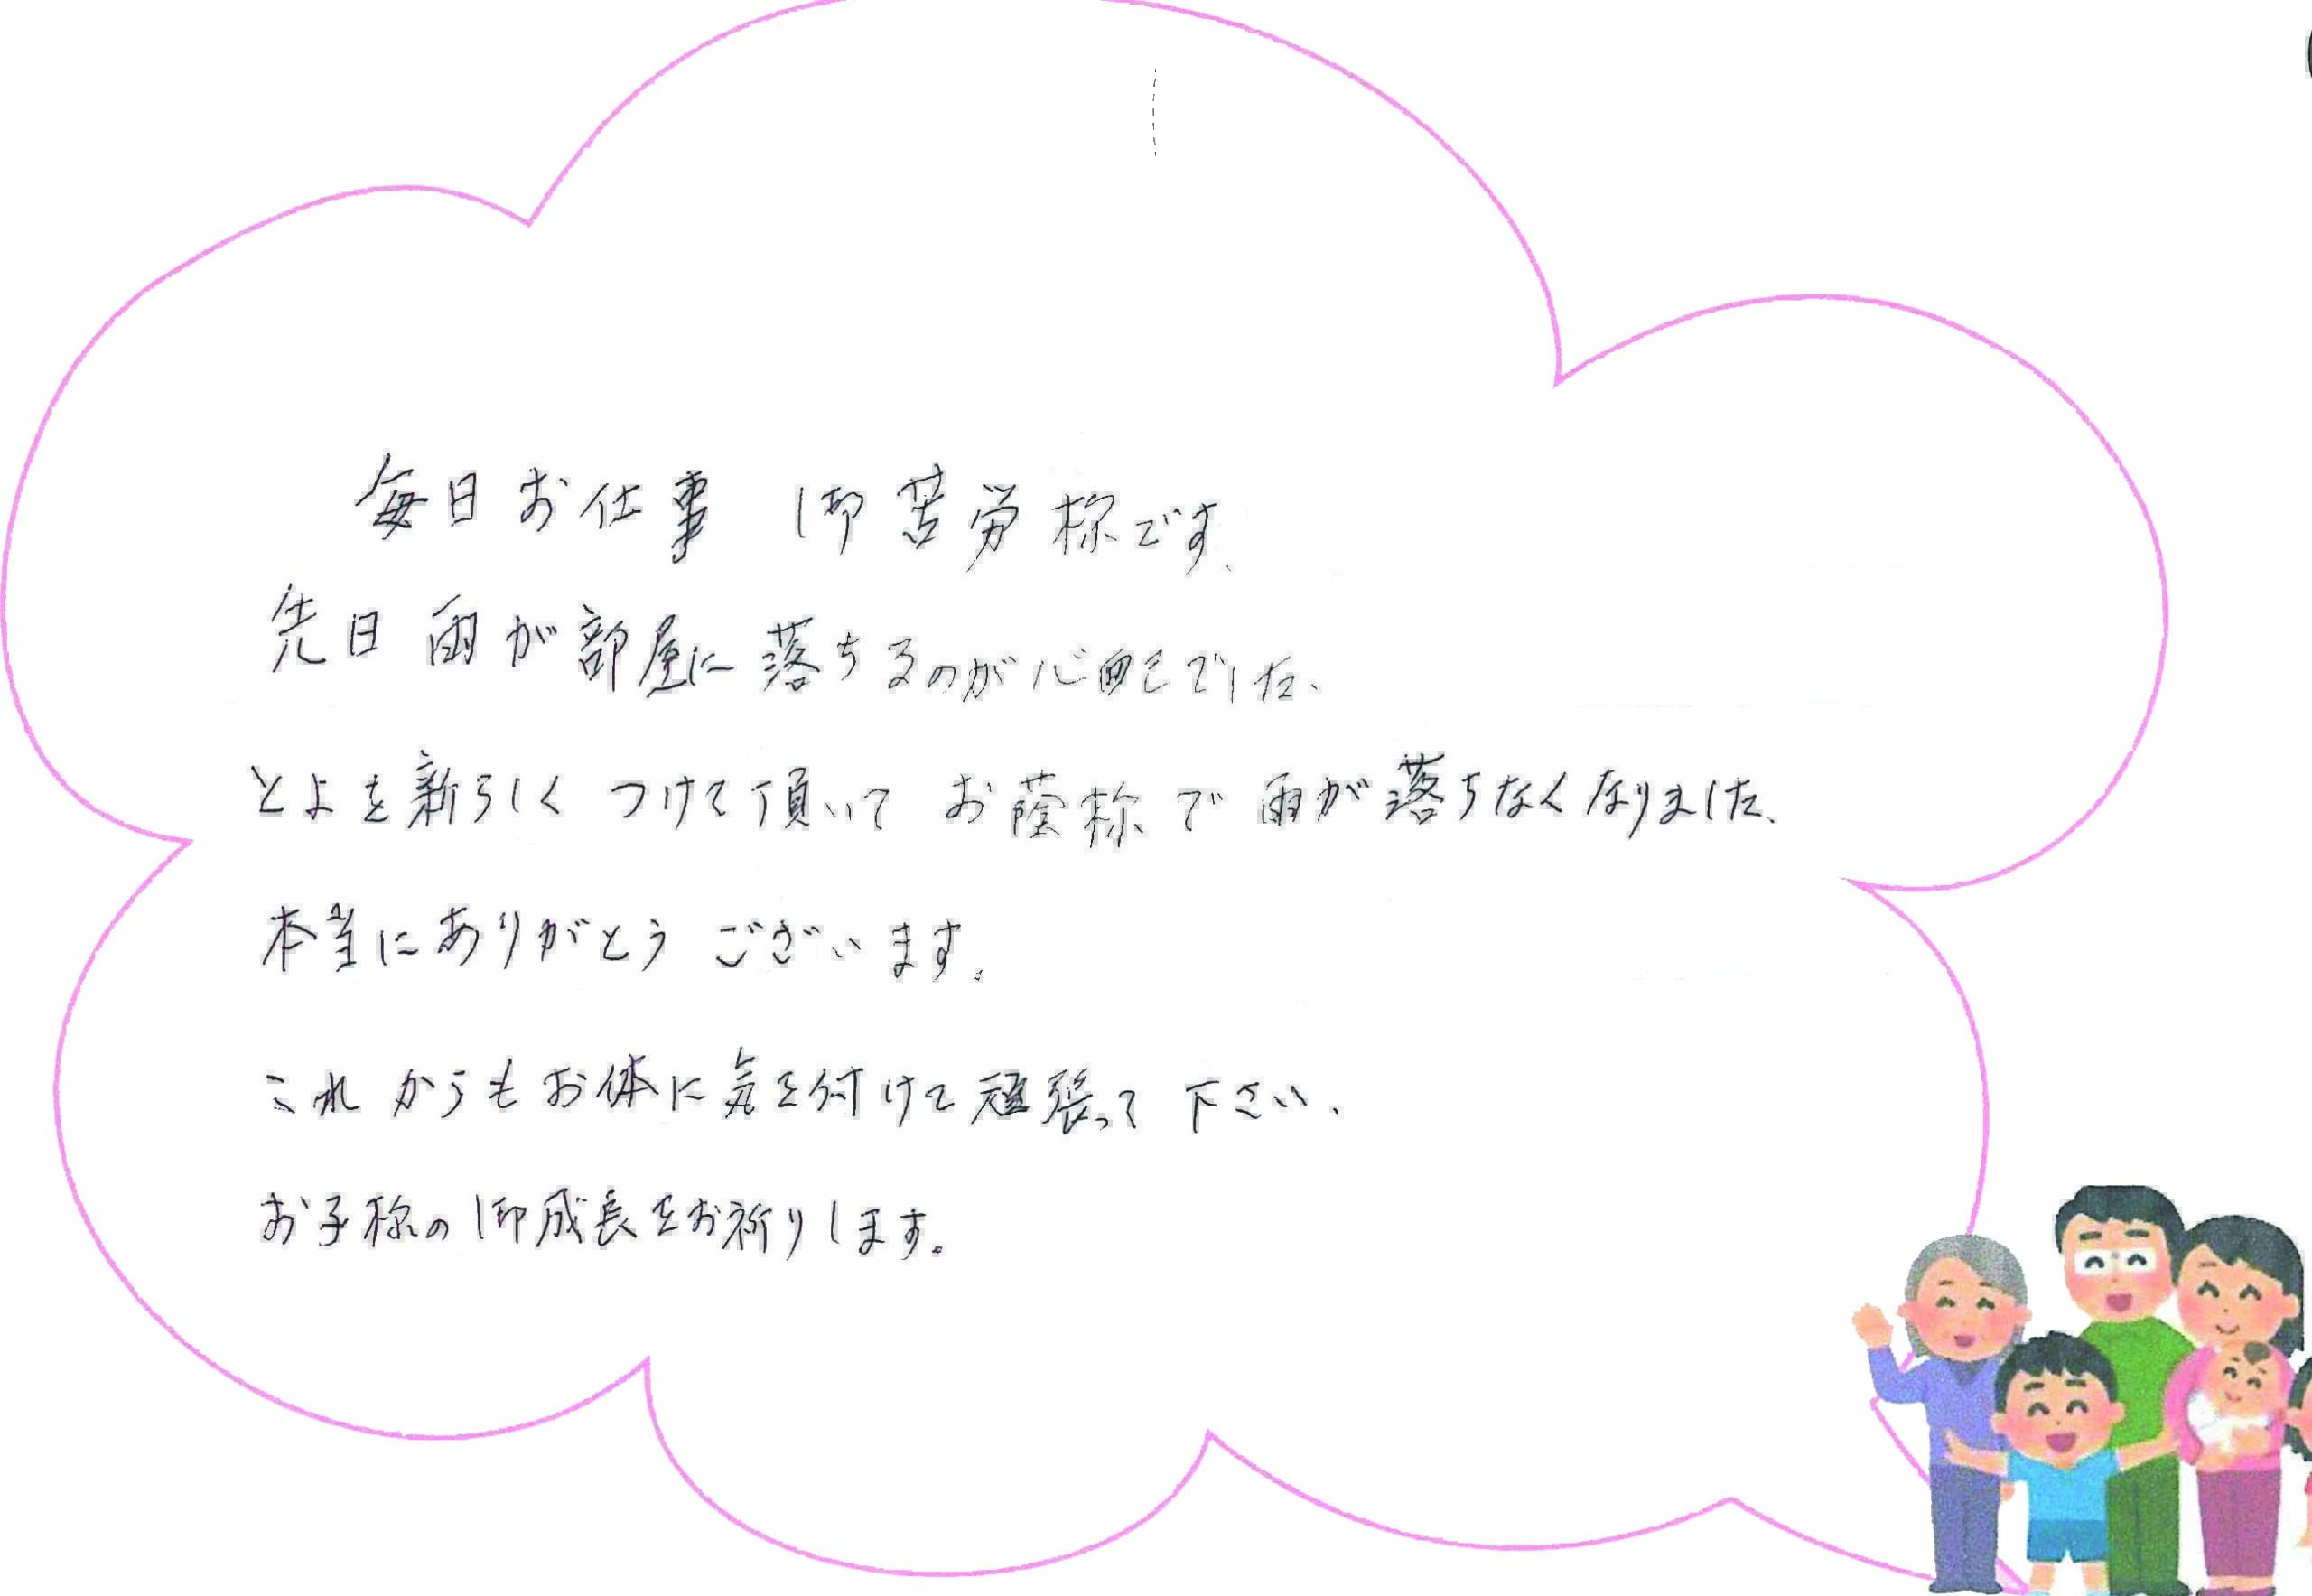 毎日お仕事 御苦労様です、
先日 雨が部屋に落ちるのが心配でした、
とよを新らしく つけて頂いて お蔭様で 雨が落ちなくなりました、
本当にありがとう ございます。
これからもお体に気を付けて頑張って 下さい、
お子様の御成長をお祈りします。